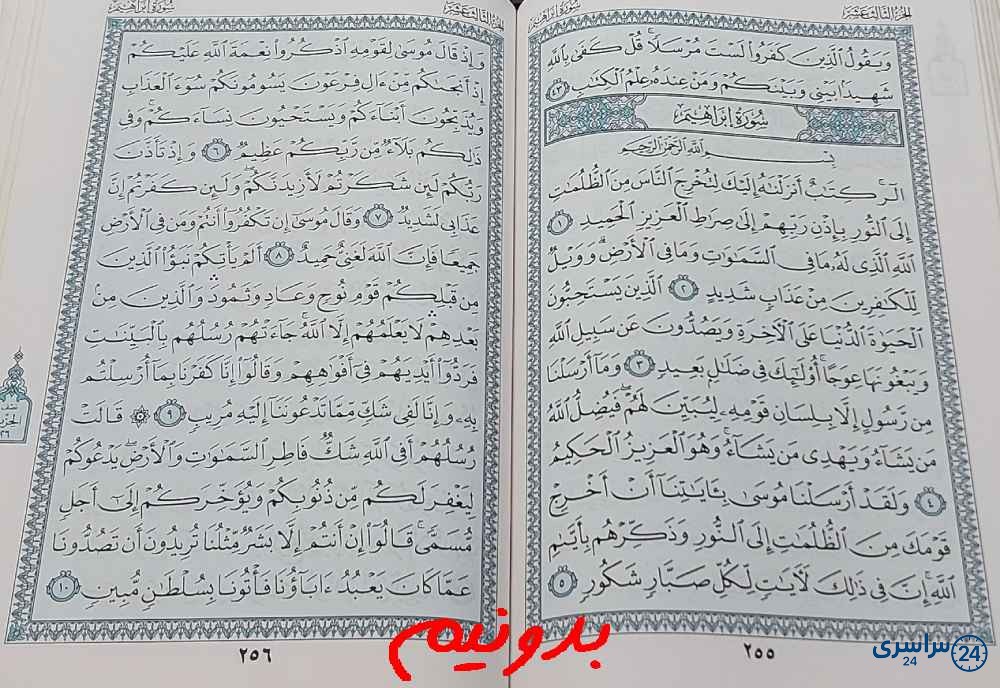 الجزء الثالث عشر
سورة إبراهيم
وَيَقُولُ ٱلَّذِينَ كَفَرُوا۟ لَسْتَ مُرْسَلًا ۚ قُلْ كَفَىٰ بِٱللَّهِ
شَهِيدًۢا بَيْنِى وَبَيْنَكُمْ وَمَنْ عِندَهُۥ عِلْمُ ٱلْكِتَٰبِ ٤٣
سُورَةُ إِبْرَاهِيمَ
بِسْمِ ٱللَّهِ ٱلرَّحْمَٰنِ ٱلرَّحِيمِ
الٓر ۚ كِتَٰبٌ أَنزَلْنَٰهُ إِلَيْكَ لِتُخْرِجَ ٱلنَّاسَ مِنَ ٱلظُّلُمَٰتِ
إِلَى ٱلنُّورِ بِإِذْنِ رَبِّهِمْ إِلَىٰ صِرَٰطِ ٱلْعَزِيزِ ٱلْحَمِيدِ ١
ٱللَّهِ ٱلَّذِى لَهُۥ مَا فِى ٱلسَّمَٰوَٰتِ وَمَا فِى ٱلْأَرْضِ ۗ وَوَيْلٌ
لِّلْكَٰفِرِينَ مِنْ عَذَابٍ شَدِيدٍ ٢ ٱلَّذِينَ يَسْتَحِبُّونَ
ٱلْحَيَوٰةَ ٱلدُّنْيَا عَلَى ٱلْأَخِرَةِ وَيَصُدُّونَ عَن سَبِيلِ ٱللَّهِ
وَيَبْغُونَهَا عِوَجًا ۚ أُو۟لَٰٓئِكَ فِى ضَلَٰلٍۭ بَعِيدٍ ٣ وَمَآ أَرْسَلْنَا
مِن رَّسُولٍ إِلَّا بِلِسَانِ قَوْمِهِۦ لِيُبَيِّنَ لَهُمْ ۖ فَيُضِلُّ ٱللَّهُ
مَن يَشَآءُ وَيَهْدِى مَن يَشَآءُ ۚ وَهُوَ ٱلْعَزِيزُ ٱلْحَكِيمُ
٤ وَلَقَدْ أَرْسَلْنَا مُوسَىٰ بِـَٔايَٰتِنَآ أَنْ أَخْرِجْ
قَوْمَكَ مِنَ ٱلظُّلُمَٰتِ إِلَى ٱلنُّورِ وَذَكِّرْهُم بِأَيَّىٰمِ
ٱللَّهِ ۚ إِنَّ فِى ذَٰلِكَ لَءَايَٰتٍ لِّكُلِّ صَبَّارٍ شَكُورٍ ٥
٢٥٥
الجزء الثالث عشر
سورة إبراهيم
وَإِذْ قَالَ مُوسَىٰ لِقَوْمِهِ ٱذْكُرُوا۟ نِعْمَةَ ٱللَّهِ عَلَيْكُمْ
إِذْ أَنجَىٰكُم مِّنْ ءَالِ فِرْعَوْنَ يَسُومُونَكُمْ سُوٓءَ ٱلْعَذَابِ
وَيُذَبِّحُونَ أَبْنَآءَكُمْ وَيَسْتَحْيُونَ نِسَآءَكُمْ ۚ وَفِى
ذَٰلِكُم بَلَآءٌ مِّن رَّبِّكُمْ عَظِيمٌ ٦ وَإِذْ تَأَذَّنَ
رَبُّكُمْ لَئِن شَكَرْتُمْ لَأَزِيدَنَّكُمْ ۖ وَلَئِن كَفَرْتُمْ إِنَّ
عَذَابِى لَشَدِيدٌ ٧ وَقَالَ مُوسَىٰٓ إِن تَكْفُرُوٓا۟ أَنتُمْ وَمَن فِى ٱلْأَرْضِ
جَمِيعًا فَإِنَّ ٱللَّهَ لَغَنِىٌّ حَمِيدٌ ٨ أَلَمْ يَأْتِكُمْ نَبَؤُا۟ ٱلَّذِينَ
مِن قَبْلِكُمْ قَوْمِ نُوحٍ وَعَادٍ وَثَمُودَ ۛ وَٱلَّذِينَ مِنۢ
بَعْدِهِمْ ۛ لَا يَعْلَمُهُمْ إِلَّا ٱللَّهُ ۚ جَآءَتْهُمْ رُسُلُهُم بِٱلْبَيِّنَٰتِ
فَرَدُّوٓا۟ أَيْدِيَهُمْ فِىٓ أَفْوَٰهِهِمْ وَقَالُوٓا۟ إِنَّا كَفَرْنَا بِمَآ أُرْسِلْتُم
بِهِۦ وَإِنَّا لَفِى شَكٍّ مِّمَّا تَدْعُونَنَآ إِلَيْهِ مُرِيبٍ ٩ ۞ قَالَتْ
رُسُلُهُمْ أَفِى ٱللَّهِ شَكٌّ فَاطِرِ ٱلسَّمَٰوَٰتِ وَٱلْأَرْضِ ۖ يَدْعُوكُمْ
لِيَغْفِرَ لَكُم مِّن ذُنُوبِكُمْ وَيُؤَخِّرَكُمْ إِلَىٰٓ أَجَلٍ
مُّسَمًّى ۚ قَالُوٓا۟ إِنْ أَنتُمْ إِلَّا بَشَرٌ مِّثْلُنَا تُرِيدُونَ أَن تَصُدُّونَا
عَمَّا كَانَ يَعْبُدُ ءَابَآؤُنَا فَأْتُونَا بِسُلْطَٰنٍ مُّبِينٍ ١٠
٢٥٦
بدونیم
سراسری 24
24